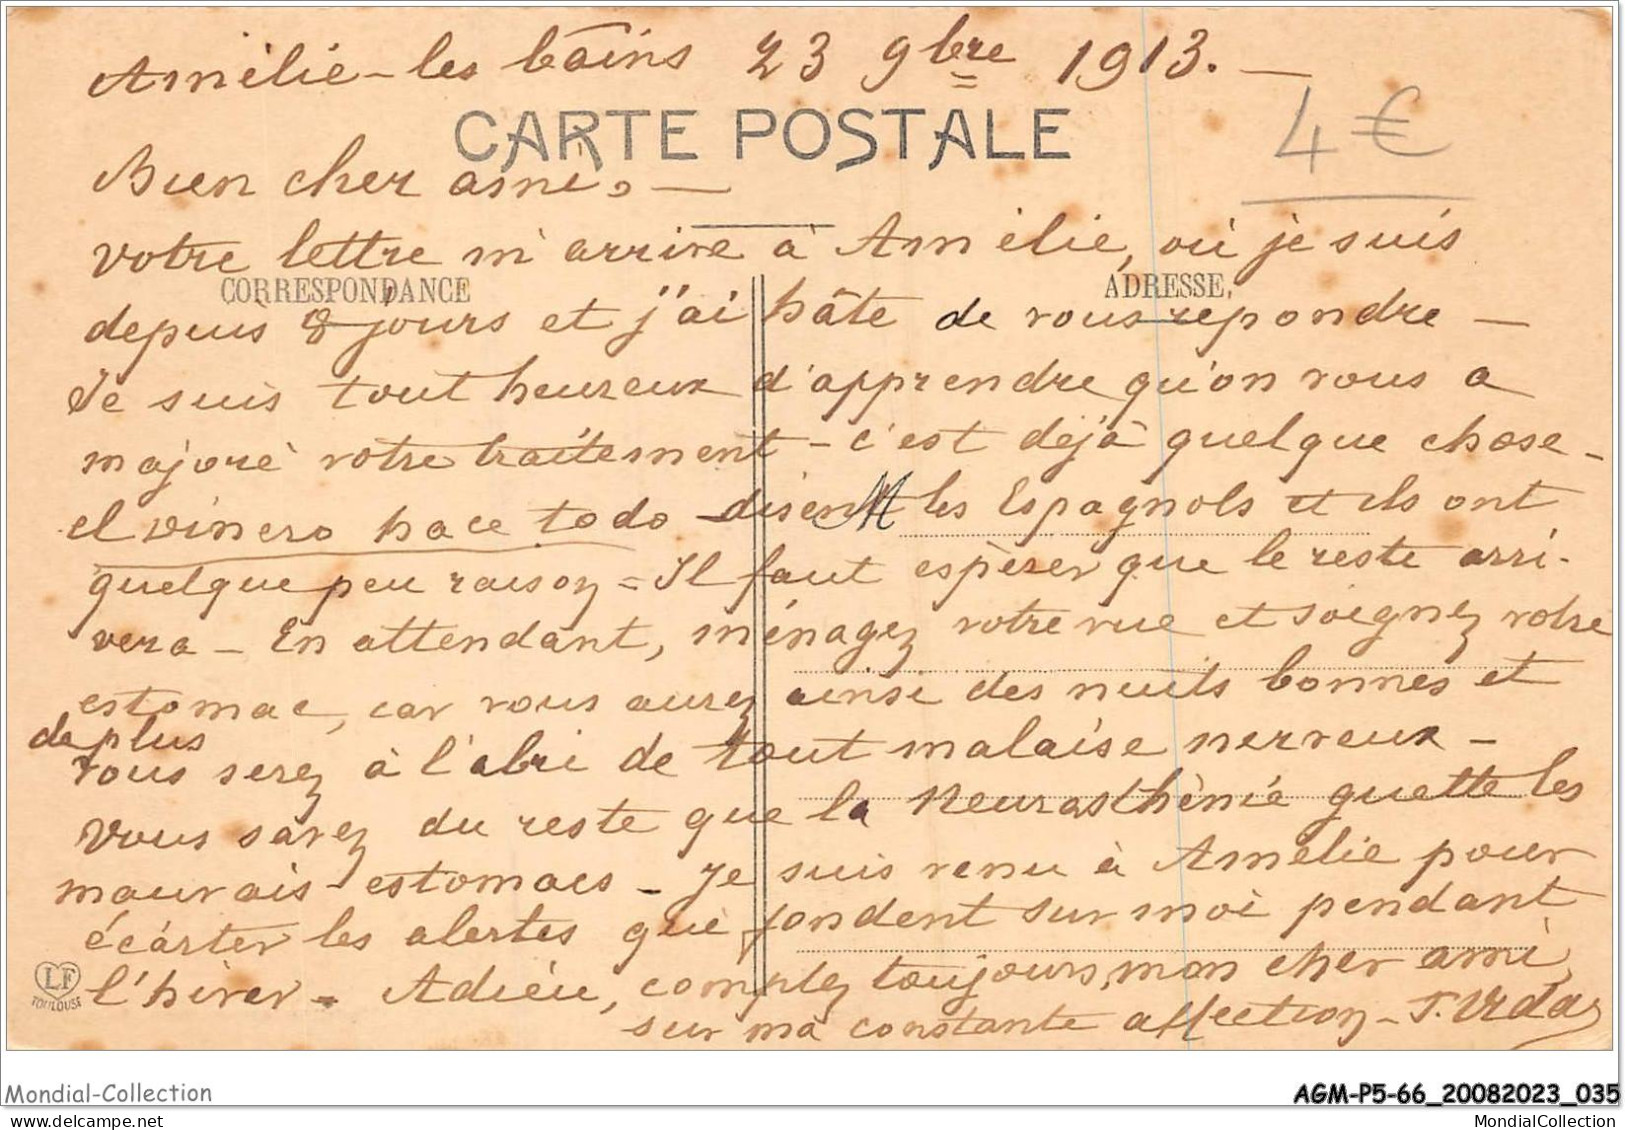 Amélie-les bains 23 9bre 1913. —
CARTE POSTALE
4 €
Bien cher ami, —
votre lettre m'arrive à Amélie, où je suis
CORRESPONDANCE
ADRESSE
depuis 8 jours et j'ai hâte de vous repondre —
Je suis tout heureux d'apprendre qu'on vous a
majoré votre traitement — c'est dejà quelque chose —
el vinero hace todo — disent les Espagnols et ils ont
M
quelque peu raison = Il faut espèrer que le reste arri-
vera — En attendant, ménagez votre vue et soignez votre
estomac, car vous aurez ainsi des nuits bonnes et
de plus
vous serez à l'abri de tout malaise nerveux —
Vous savez du reste que la Neurasthènie guette les
mauvais estomacs — Je suis venu à Amélie pour
écarter les alertes qui fondent sur moi pendant
l'hiver — Adieu, comptez toujours, mon cher ami,
sur ma constante affection —
LF
TOULOUSE
Mondial-Collection
AGM-P5-66_20082023_035
MondialCollection
MondialCollection